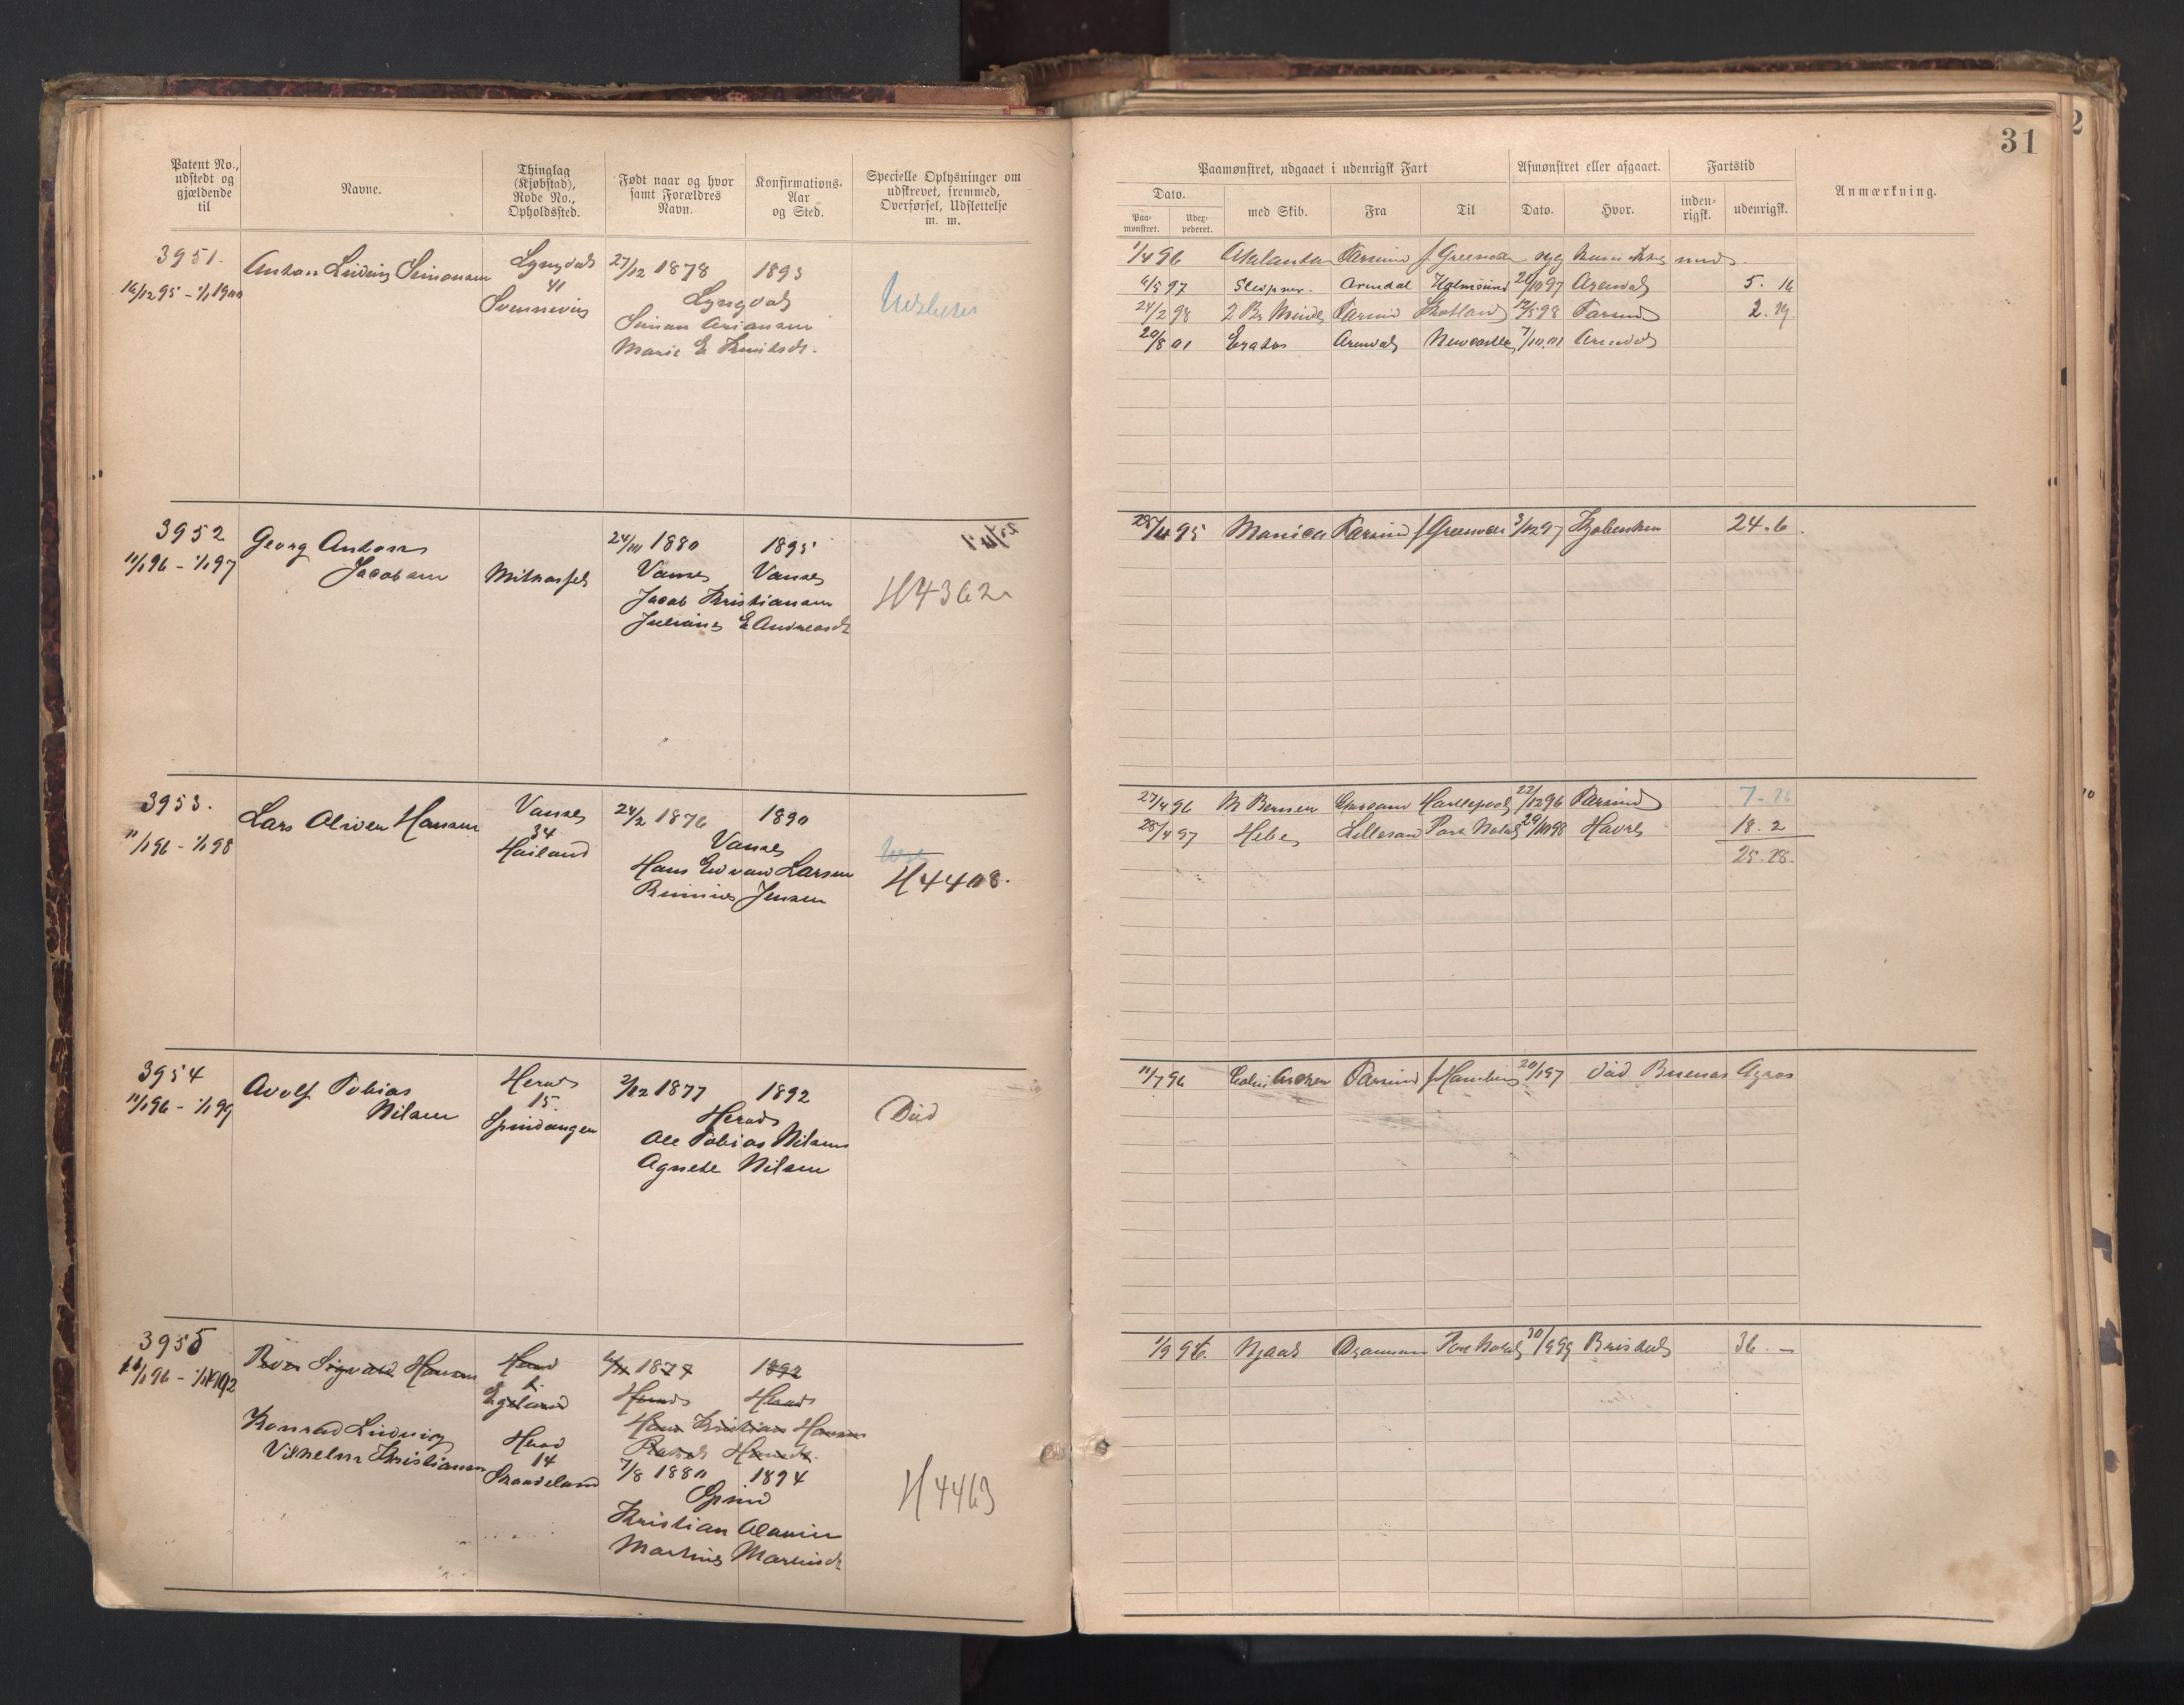 31
Patent No., udstedt og gjældende til
Navne.
Thinglag (Kjøbstad), Rode No., Opholdssted.
Født naar og hvor samt Forældres Navn.
Konfirmations- Aar og Sted.
Specielle Oplysninger om udskrevet, fremmed, Overførsel, Udslettelse m. m.
Paamønstret, udgaaet i udenrigsk Fart
Afmønstret eller afgaaet.
Fartstid
Anmærkning.
Dato.
Paa- mønstret.
Udex- pederet.
med Skib.
Fra
Til
Dato.
Hvor.
inden- rigsk.
udenrigsk.
3951.
16/12 95 - 1/1 1900
Anton Ludvig Simonsen
Lyngdal
41
Svennevig
27/12 1878 1893
Lyngdal
Simon
Marie E
1/4 96 Atalanta Farsund
6/5 97 Sleipner. Arendal Holmsund 97 Arendal 5. 16
24/2 98 2 Br Minde Farsund 12/5 98 Farsund 2. 19
20/8 01 Eratos Arendal Newcastle 7/10 01 Arendal
3952
11/1 96 - 1/1 97
Georg Anton
Jacobsen
24/10 1880 1895
Vanse Vanse
Jacob Kristiansen
Juliane E Andreasdt
H 4362
95 Monica Farsund 3/12 97 Kjøbenhavn 24. 6.
3953.
11/1 96 - 1/1 98
Lars Oliver Hansen
Vanse
34
Hailand
24/2 1876 1890
Vanse
Hans Edvard Larsen
Jensen
H 4408.
27/4 96 Hartlepool 22/12 96 Farsund 7. 26
28/4 97 Hebe Lillesand Port Natal 29/10 98 Havre 18. 2
25. 28.
3954
11/1 96 - 1/1 99
Adolf Tobias
Nilsen
Herad
15.
Spindangen
2/12 1877 1892
Herad
Ole Tobias Nilsen
Agnete Nilsen
Död
11/7 96 Farsund f Hamburg 20/1 97 död Buenos Ayres
3955
11/1 96 -
Peder Sigvald Hansen
Herad
Egeland
1877 1892
Herad Herad
Hans Kristian Hansen
Konrad Ludvig
Vilhelm Kristiansen
Herad
14
Skandeland
7/8 1880 1894
Spind
Kristian
Martine
H 4463
1/9 96. Njaal Drammen Port Natal 30/9 99 Bristol 36. -